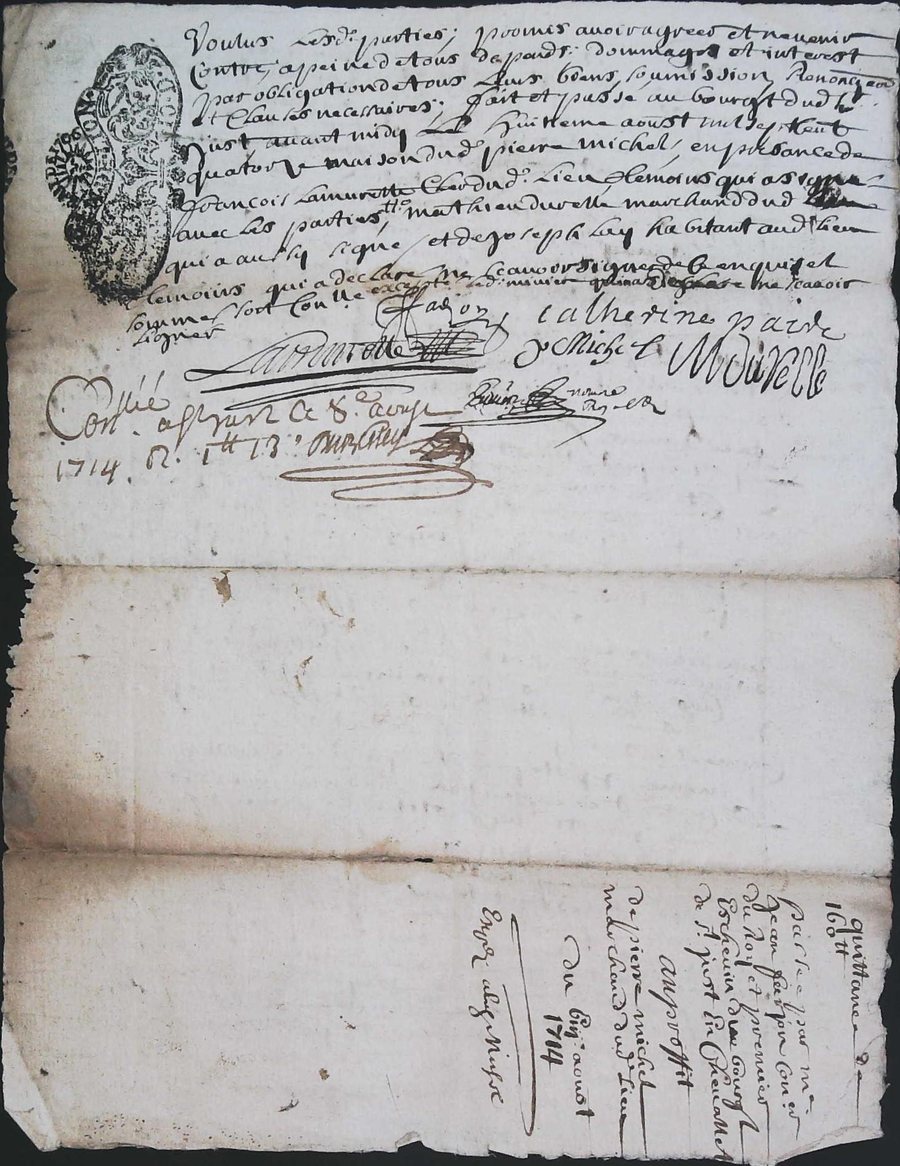 Voulus Lesd. parties; promis avoir agrees et ne venir
Contre; a peine de tous depands; dommages et interest
par obligation de tous Leurs biens, soumission, Renonç
et Clauses necessaires; fait et passé au bourgt dud St
Just avant midy Le huitieme aoust mil sept cent
quatorze maison dud. pierre michel, en presance de
françois Lamurette Clerc dud. Lieu temoins qui a signe
avec Les parties, mathieu durelle marchand dud Lieu
qui a aussy signe, et de Joseph Lay habitant aud Lieu
temoins qui a declare ne scavoir signer de ce enquis et
somme soit Con lle excepte led. ne scavoir
signer
farjon
Catherine
p Michel
M Durelle
Conllé a St Just Ce 8e aoust
1714. R. 1tt 13s
quittance de
160tt
passée par me
Jean farjon Coner
du Roy et premier
Eschevin du bourgt
de St Just En Chevallet
au proffit
de pierre michel
marchand dud Lieu
Du 8me aoust
1714